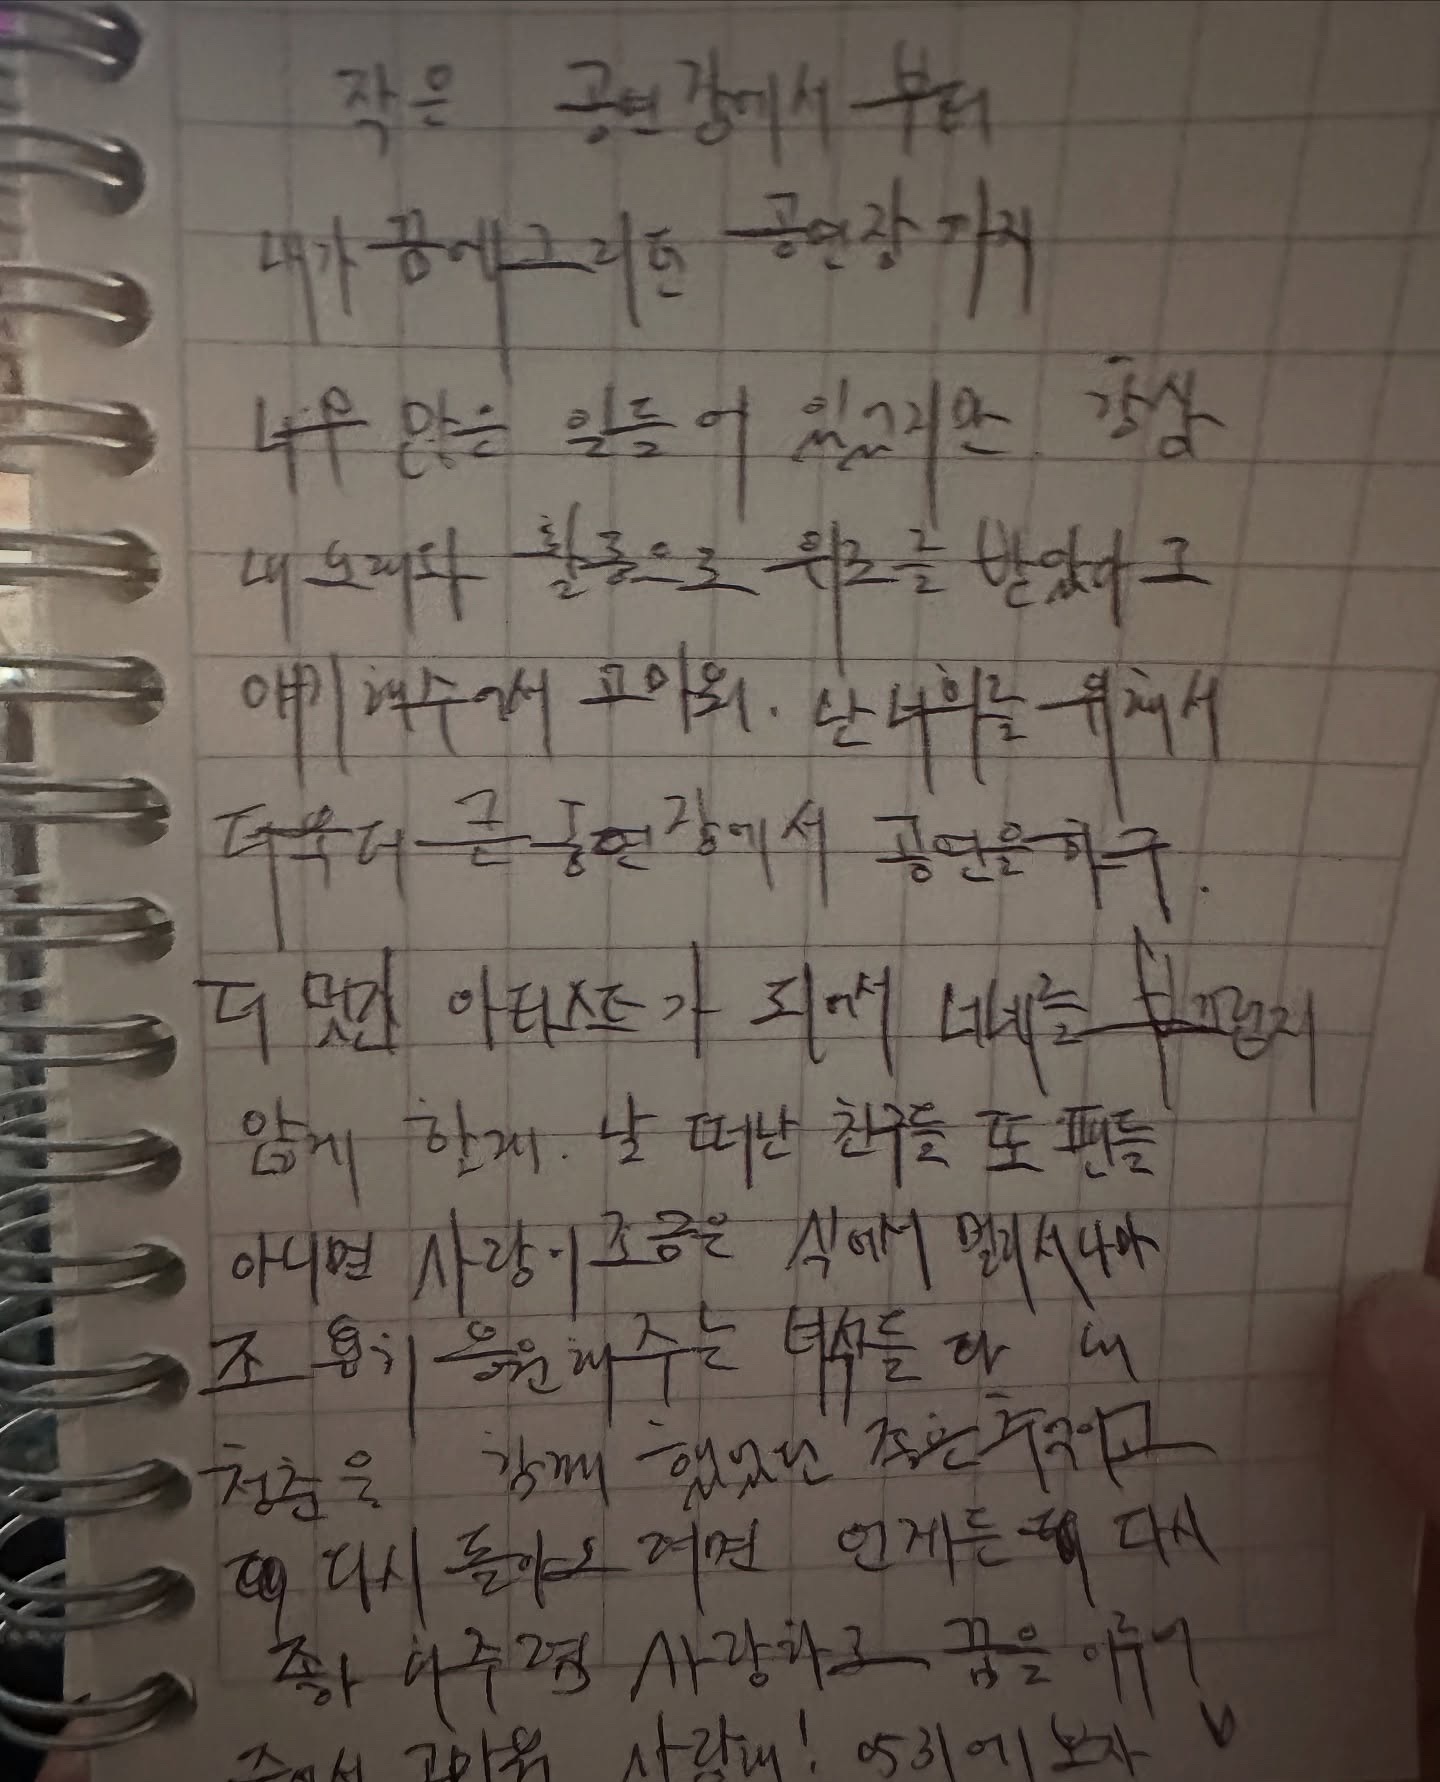 작은 공연장에서부터
내가 꿈에그리던 공연장까지
너무 많은 일들이 있었지만 항상
내 노래와 활동으로 위로를 받았다고
얘기해줘서 고마워. 난 너희를 위해서
더욱더 큰 공연장에서 공연을하구.
더 멋진 아티스트가 되어서 너네를 부끄럽지
않게 할게. 날 떠난 친구들 또 팬들
아니면 사랑이 조금은 식어서 멀리서나마
조용히 응원해주는 녀석들 다 내
청춘을 함께 했었던 좋은추억이고
다시 돌아오려면 언제든 다시
좋아해주렴 사랑하고 꿈을 이루어
주어서 고마워 사랑해! 0531에 보자